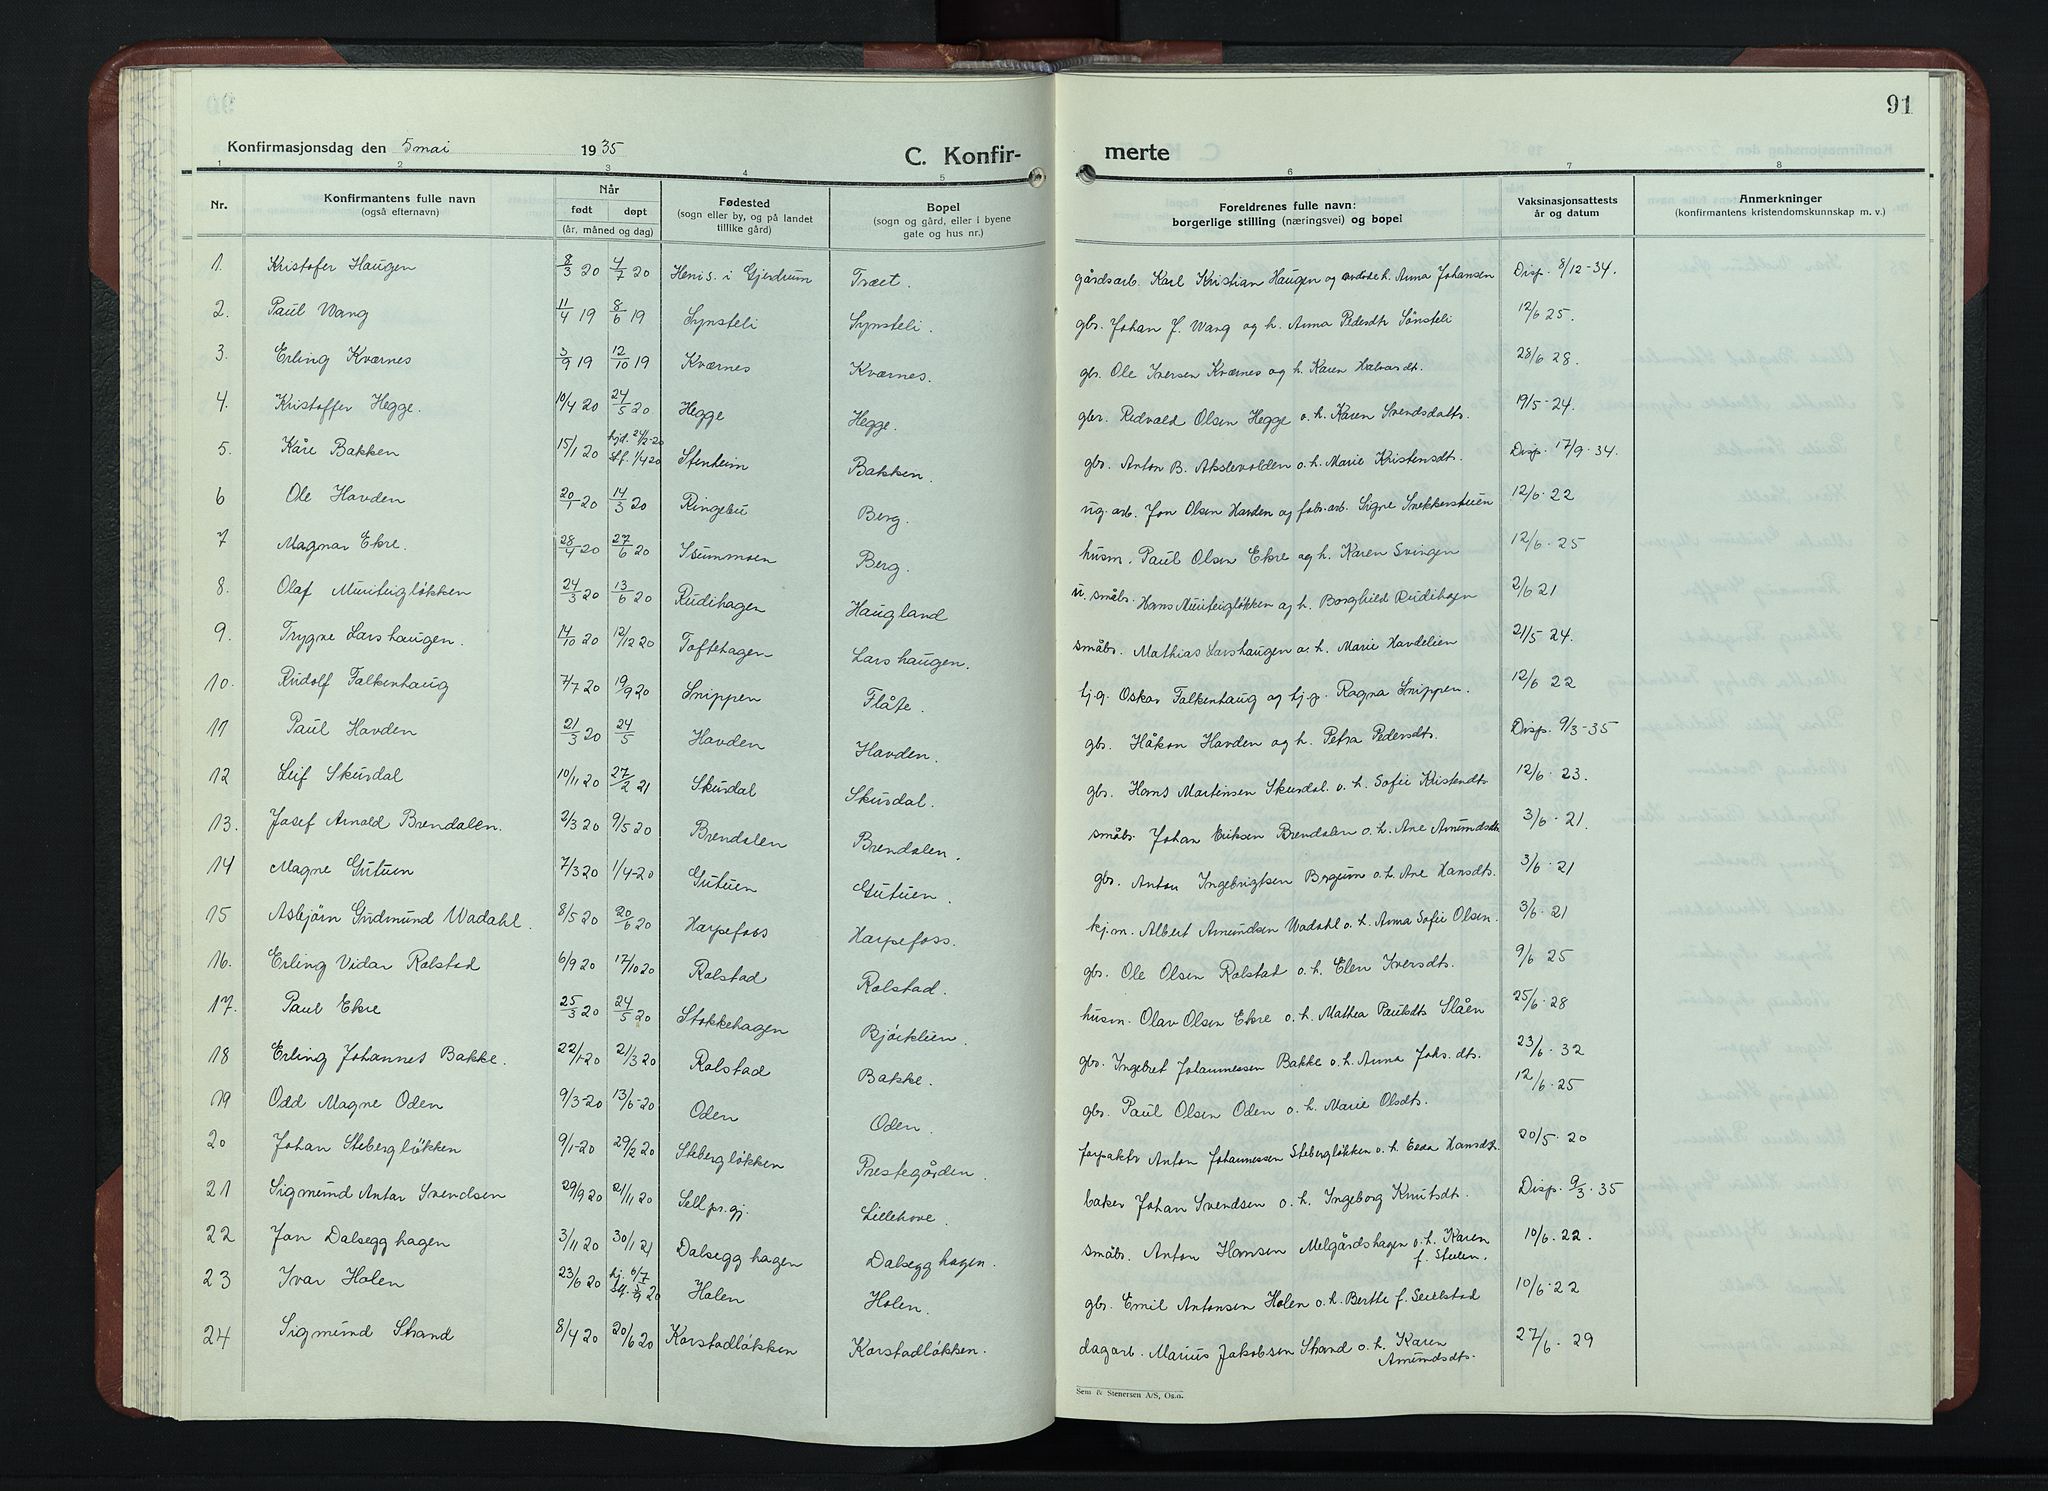 91
Konfirmasjonsdag den 5 mai 1935
C. Konfir-
merte
1 2 3 4 5 6 7 8
Nr. Konfirmantens fulle navn (også efternavn) Når født døpt (år, måned og dag) Fødested (sogn eller by, og på landet tillike gård) Bopel (sogn og gård, eller i byene gate og hus nr.) Foreldrenes fulle navn: borgerlige stilling (næringsvei) og bopel Vaksinasjonsattests år og datum Anmerkninger (konfirmantens kristendomskunnskap m. v.)
1. Kristofer Haugen 8/3 20 4/7 20 Henis. i Gjerdrum Træet. gårdsarb. Karl Kristian Haugen og h. Anna Johansen Disp. 8/12-34.
2. Paul Wang 11/4 19 8/6 19 Synsteli Synsteli. gbr. Johan J. Wang og h. Anna Pedersdtr Sønsteli 12/6 25.
3. Erling Kværnes 3/9 19 12/10 19 Kværnes Kværnes. gbr. Ole Iversen Kværnes og h. Karen Halvardt. 28/6 28.
4. Kristoffer Hegge. 10/4 20 24/5 20 Hegge Hegge. gbr. Redvald Olsen Hegge o. h. Karen Svendsdatr. 19/5-24.
5. Kåre Bakken 15/1 20 hjd. 24/2-20 stf. 1/4 20 Stenheim Bakken. gbr. Anton B. Akslevolden o. h. Marie Kristensdt. Disp. 17/9-34.
6 Ole Havden 20/1 20 14/3 20 Ringebu Berg. ug. arb. Jon Olsen Havden og fabr. arb. Signe Snekkerstuen 12/6-22
7 Magnar Ekre. 28/4 20 27/6 20 Isummoen Berg. husm. Paul Olsen Ekre og h. Karen Svingen 12/6-25
8. Olaf Muriteigløkken 24/3 20 13/6 20 Rudihagen Haugland u. småbr. Hans Muriteigløkken og h. Borghild Rudihagen 2/6 21
9. Trygve Larshaugen. 14/10 20 12/12 20 Toftehagen Larshaugen. småbr. Mathias Larshaugen o. h. Marie Havdelien 21/5-24.
10. Rudolf Falkenhaug 7/7 20 19/9 20 Snippen Flåte. tj.g. Oskar Falkenhaug og tj.p. Ragna Snippen. 12/6 22
11 Paul Havden 21/3 20 24/5 Havden Havden. gbr. Håkon Havden og h. Petra Pedersdt. Disp. 9/3-35
12 Leif Skurdal 10/11 20 27/2 21 Skurdal Skurdal. gbr. Hans Martinsen Skurdal. o. h. Sofie Kristendtr 12/6-23.
13. Josef Arnold Brendalen. 2/3 20 9/5 20 Brendalen Brendalen. småbr. Johan Eriksen Brendalen o. h. Ane Amundsdtr 3/6-21.
14 Magne Gutuen 7/3 20 1/4-20 Gutuen Gutuen. gbr. Anton Ingebrigtsen Bergum o. h. Ane Hansdt. 3/6-21
15 Asbjörn Gudmund Wadahl. 8/5 20 20/6 20 Harpefoss Harpefoss. kj.m. Albert Amundsen Wadahl o. h. Anna Sofie Olsen. 3/6-21
16. Erling Vidar Rolstad 6/9 20 17/10 20 Rolstad Rolstad. gbr. Ole Olsen Rolstad o. h. Elen Iversdt. 9/6 25
17. Paul Ekre 25/3 20 24/5 20 Stokkehagen Bjørklien. husm. Olav Olsen Ekre o. h. Mathea Paulsdt Slåen 25/6-28
18 Erling Johannes Bakke. 22/1-20 21/3 20 Rolstad Bakke. gbr. Ingebret Johannessen Bakke o. h. Anna Johs. dt. 23/6-32
19 Odd Magne Oden 9/3-20 13/6-20 Oden Oden. gbr. Paul Olsen Oden o. h. Marie Olsdt. 12/6-25
20 Johan Stebergløkken 9/1-20 29/2 20 Stebergløkken Prestegården. forpakter Anton Johannessen Stebergløkken o. h. Hansdtr. 20/5-20
21 Sigmund Antar Svendsen 29/9 20 21/11 20 Sell pr. gj. Lillehove. baker Johan Svendsen o. h. Ingeborg Knutsdt. Disp. 9/3-35
22 Jon Dalsegg hagen 3/11 20 30/1 21 Dalsegg hagen Dalsegg hagen. småbr. Anton Hansen Melgårdshagen o. h. Karen f. Steien. 10/6-22.
23 Ivar Holen 23/6 20 hj. 6/7 sg. 5/9 20 Holen Holen. gbr. Emil Antonsen Holen o. h. Berthe f. Seielstad 10/6-22
24 Sigmund Strand 8/4 20 20/6 20 Korstadløkken Korstadløkken. dagarb. Marius Jakobsen Strand o. h. Karen Amundsdt. 27/6-29
Sem & Stenersen A/S, Oslo.